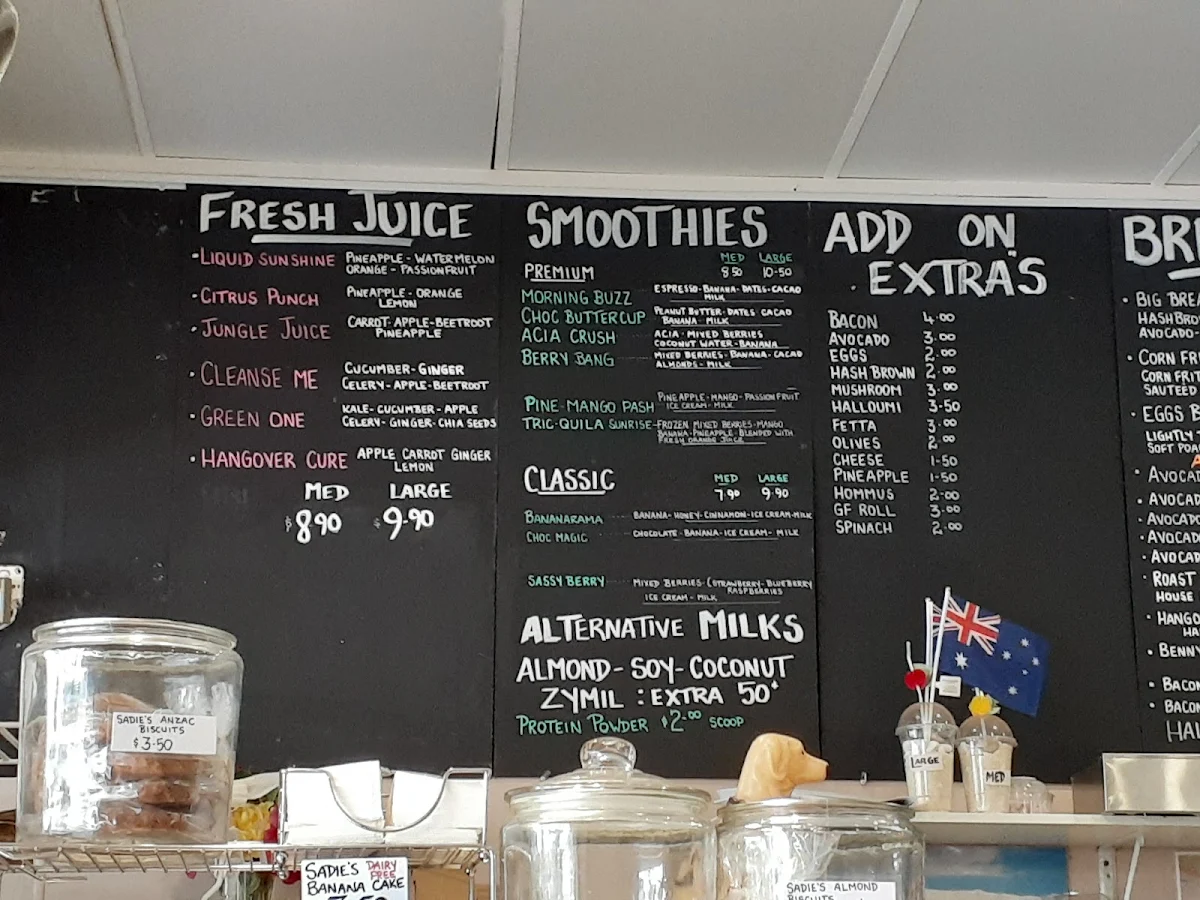 FRESH JUICE
• LIQUID SUNSHINE PINEAPPLE - WATERMELON
ORANGE - PASSIONFRUIT
• CITRUS PUNCH PINEAPPLE - ORANGE
LEMON
• JUNGLE JUICE CARROT - APPLE - BEETROOT
PINEAPPLE
• CLEANSE ME CUCUMBER - GINGER
CELERY - APPLE - BEETROOT
• GREEN ONE KALE - CUCUMBER - APPLE
CELERY - GINGER - CHIA SEEDS
• HANGOVER CURE APPLE CARROT GINGER
LEMON
MED LARGE
$8.90 $9.90
SMOOTHIES
MED LARGE
PREMIUM 8.50 10-50
MORNING BUZZ ESPRESSO - BANANA - DATES - CACAO
MILK
CHOC BUTTERCUP PEANUT BUTTER - DATES CACAO
BANANA - MILK
ACIA CRUSH ACIA - MIXED BERRIES
COCONUT WATER - BANANA
BERRY BANG MIXED BERRIES - BANANA - CACAO
ALMONDS - MILK
PINE-MANGO PASH PINEAPPLE - MANGO - PASSIONFRUIT
ICE CREAM - MILK
TRIC-QUILA SUNRISE - FROZEN MIXED BERRIES - MANGO
BANANA - PINEAPPLE - BLENDED WITH
FRESH ORANGE JUICE
CLASSIC MED LARGE
7.90 9.90
BANANARAMA BANANA - HONEY - CINNAMON - ICE CREAM - MILK
CHOC MAGIC CHOCOLATE - BANANA - ICE CREAM - MILK
SASSY BERRY MIXED BERRIES - (STRAWBERRY - BLUEBERRY
RASPBERRIES
ICE CREAM - MILK
ALTERNATIVE MILKS
ALMOND - SOY - COCONUT
ZYMIL : EXTRA 50¢
PROTEIN POWDER $2.00 SCOOP
ADD ON
EXTRA'S
BACON 4.00
AVOCADO 3.00
EGGS 2.00
HASH BROWN 2.00
MUSHROOM 3.00
HALLOUMI 3-50
FETTA 3.00
OLIVES 2.00
CHEESE 1-50
PINEAPPLE 1-50
HOMMUS 2-00
GF ROLL 3-00
SPINACH 2-00
BRE
• BIG BREA
HASH BRO
AVOCADO
• CORN FR
CORN FRIT
SAUTEED
• EGGS
LIGHTLY
SOFT POA
• AVOCA
• AVOCAD
• AVOCAD
• AVOCAD
• AVOCAD
• ROAST
HOUSE
• HANGO
HA
• BENNY
• BACON
• BACON
HAL
LARGE
MED
SADIE'S ANZAC
BISCUITS
$3-50
SADIE'S DAIRY
FREE
BANANA CAKE
SADIE'S ALMOND
BISCUITS